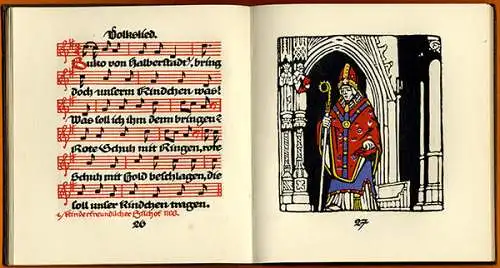 Volkslied.
Buko von Halberstadt¹, bring
doch unserm Kindchen was!
Was soll ich ihm denn bringen?
Rote Schuh mit Ringen, rote
Schuh mit Gold beschlagen, die
soll unser Kindchen tragen.
¹/ Kinderfreundlicher Bischof 1108.
26
27